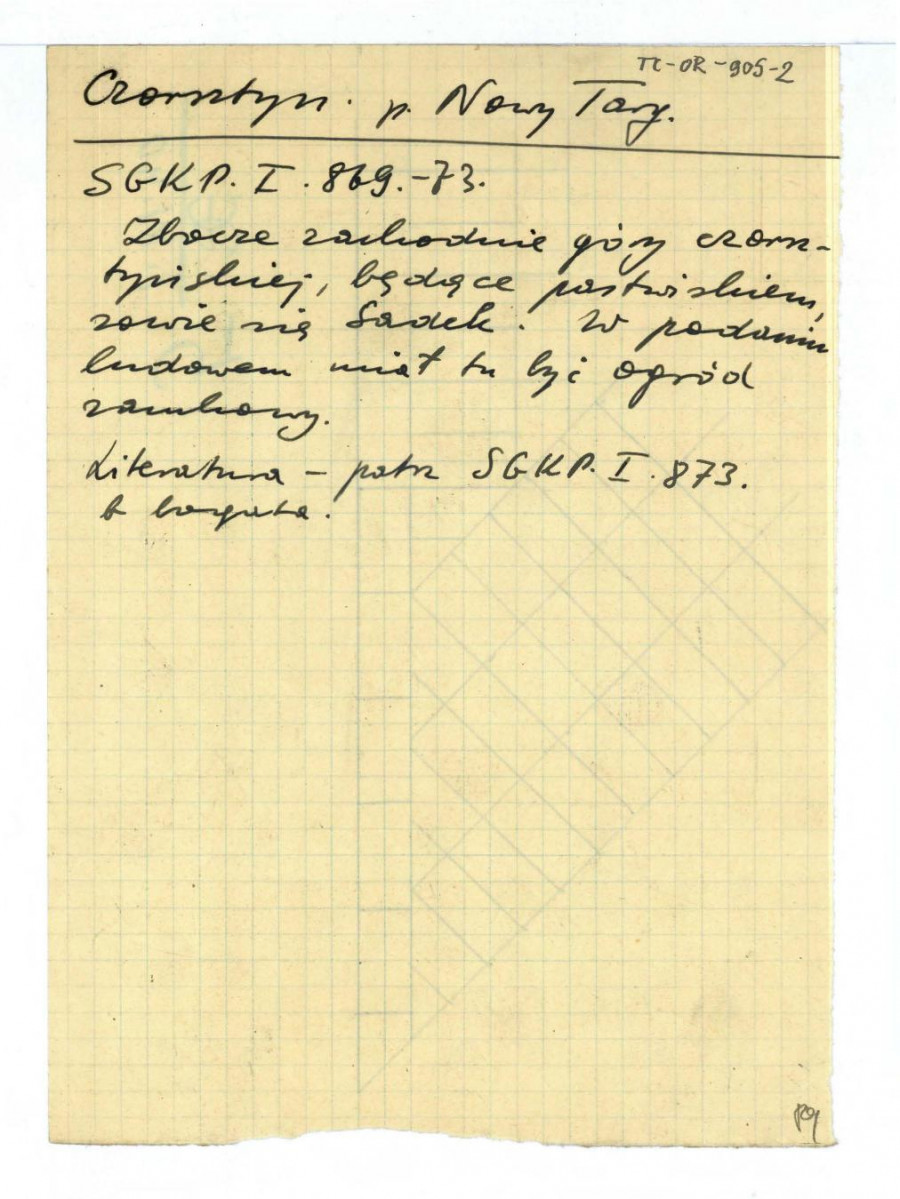 TC-OR-905-2
Czorsztyn. p. Nowy Targ.
SGKP. I. 869.-73.
Zbocze zachodnie góry czorsz-
tyńskiej, będące pastwiskiem,
zowie się Sadek. W podaniu
ludowem miał tu być ogród
zamkowy.
Literatura – patrz SGKP. I. 873.
b bogata.